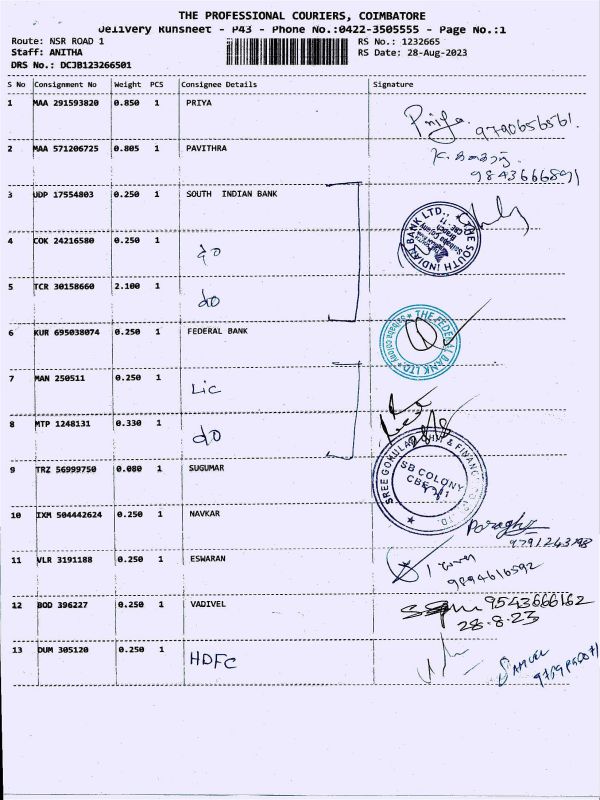 THE PROFESSIONAL COURIERS, COIMBATORE
Delivery Runsheet - P43 - Phone No.:0422-3505555 - Page No.:1
Route: NSR ROAD 1
RS No.: 1232665
Staff: ANITHA
RS Date: 28-Aug-2023
DRS No.: DCJB123266501
S No Consignment No Weight PCS Consignee Details Signature
1 MAA 291593820 0.850 1 PRIYA
Priya 9790656561
2 MAA 571206725 0.805 1 PAVITHRA
9843666891
3 UDP 17554803 0.250 1 SOUTH INDIAN BANK
THE SOUTH INDIAN BANK LTD.
4 COK 24216580 0.250 1 do
5 TCR 30158660 2.100 1 do
6 KUR 695038074 0.250 1 FEDERAL BANK
THE FEDERAL BANK LTD
7 MAN 250511 0.250 1 Lic
8 MTP 1248131 0.330 1 do
9 TRZ 56999750 0.080 1 SUGUMAR
SB COLONY
10 IXM 504442624 0.250 1 NAVKAR
9791243198
11 VLR 3191188 0.250 1 ESWARAN
9894616592
12 BOD 396227 0.250 1 VADIVEL
9543666162
28.8.23
13 DUM 305120 0.250 1 HDFC
SAMUEL